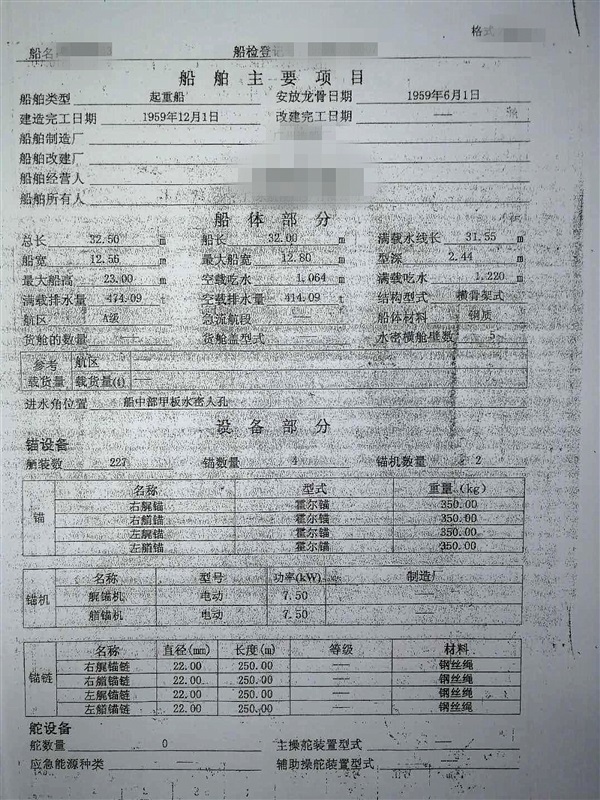 格式
船名 船检登记
船 舶 主 要 项 目
船舶类型 起重船 安放龙骨日期 1959年6月1日
建造完工日期 1959年12月1日 改建完工日期 ——
船舶制造厂
船舶改建厂
船舶经营人
船舶所有人
船 体 部 分
总长 32.50 m 船长 32.00 m 满载水线长 31.55 m
船宽 12.56 m 最大船宽 12.80 m 型深 2.44 m
最大船高 23.00 m 空载吃水 1.064 m 满载吃水 1.220 m
满载排水量 474.09 t 空载排水量 414.09 t 结构型式 横骨架式
航区 A级 急流航段 —— 船体材料 钢质
货舱的数量 —— 货舱盖型式 —— 水密横舱壁数 5
参考 航区 ——
载货量 载货量(t) ——
进水角位置 船中部甲板水密人孔
设 备 部 分
锚设备
舾装数 227 锚数量 4 锚机数量 2
名称 型式 重量 (kg)
右艉锚 霍尔锚 350.00
右艏锚 霍尔锚 350.00
锚
左艉锚 霍尔锚 350.00
左艏锚 霍尔锚 350.00
名称 型号 功率(kW) 制造厂
锚机 艉锚机 电动 7.50 ——
艏锚机 电动 7.50 ——
名称 直径(mm) 长度(m) 等级 材料
右艉锚链 22.00 250.00 —— 钢丝绳
锚链 右艏锚链 22.00 250.00 —— 钢丝绳
左艉锚链 22.00 250.00 —— 钢丝绳
左艏锚链 22.00 250.00 —— 钢丝绳
舵设备
舵数量 0 主操舵装置型式 ——
应急能源种类 —— 辅助操舵装置型式 ——